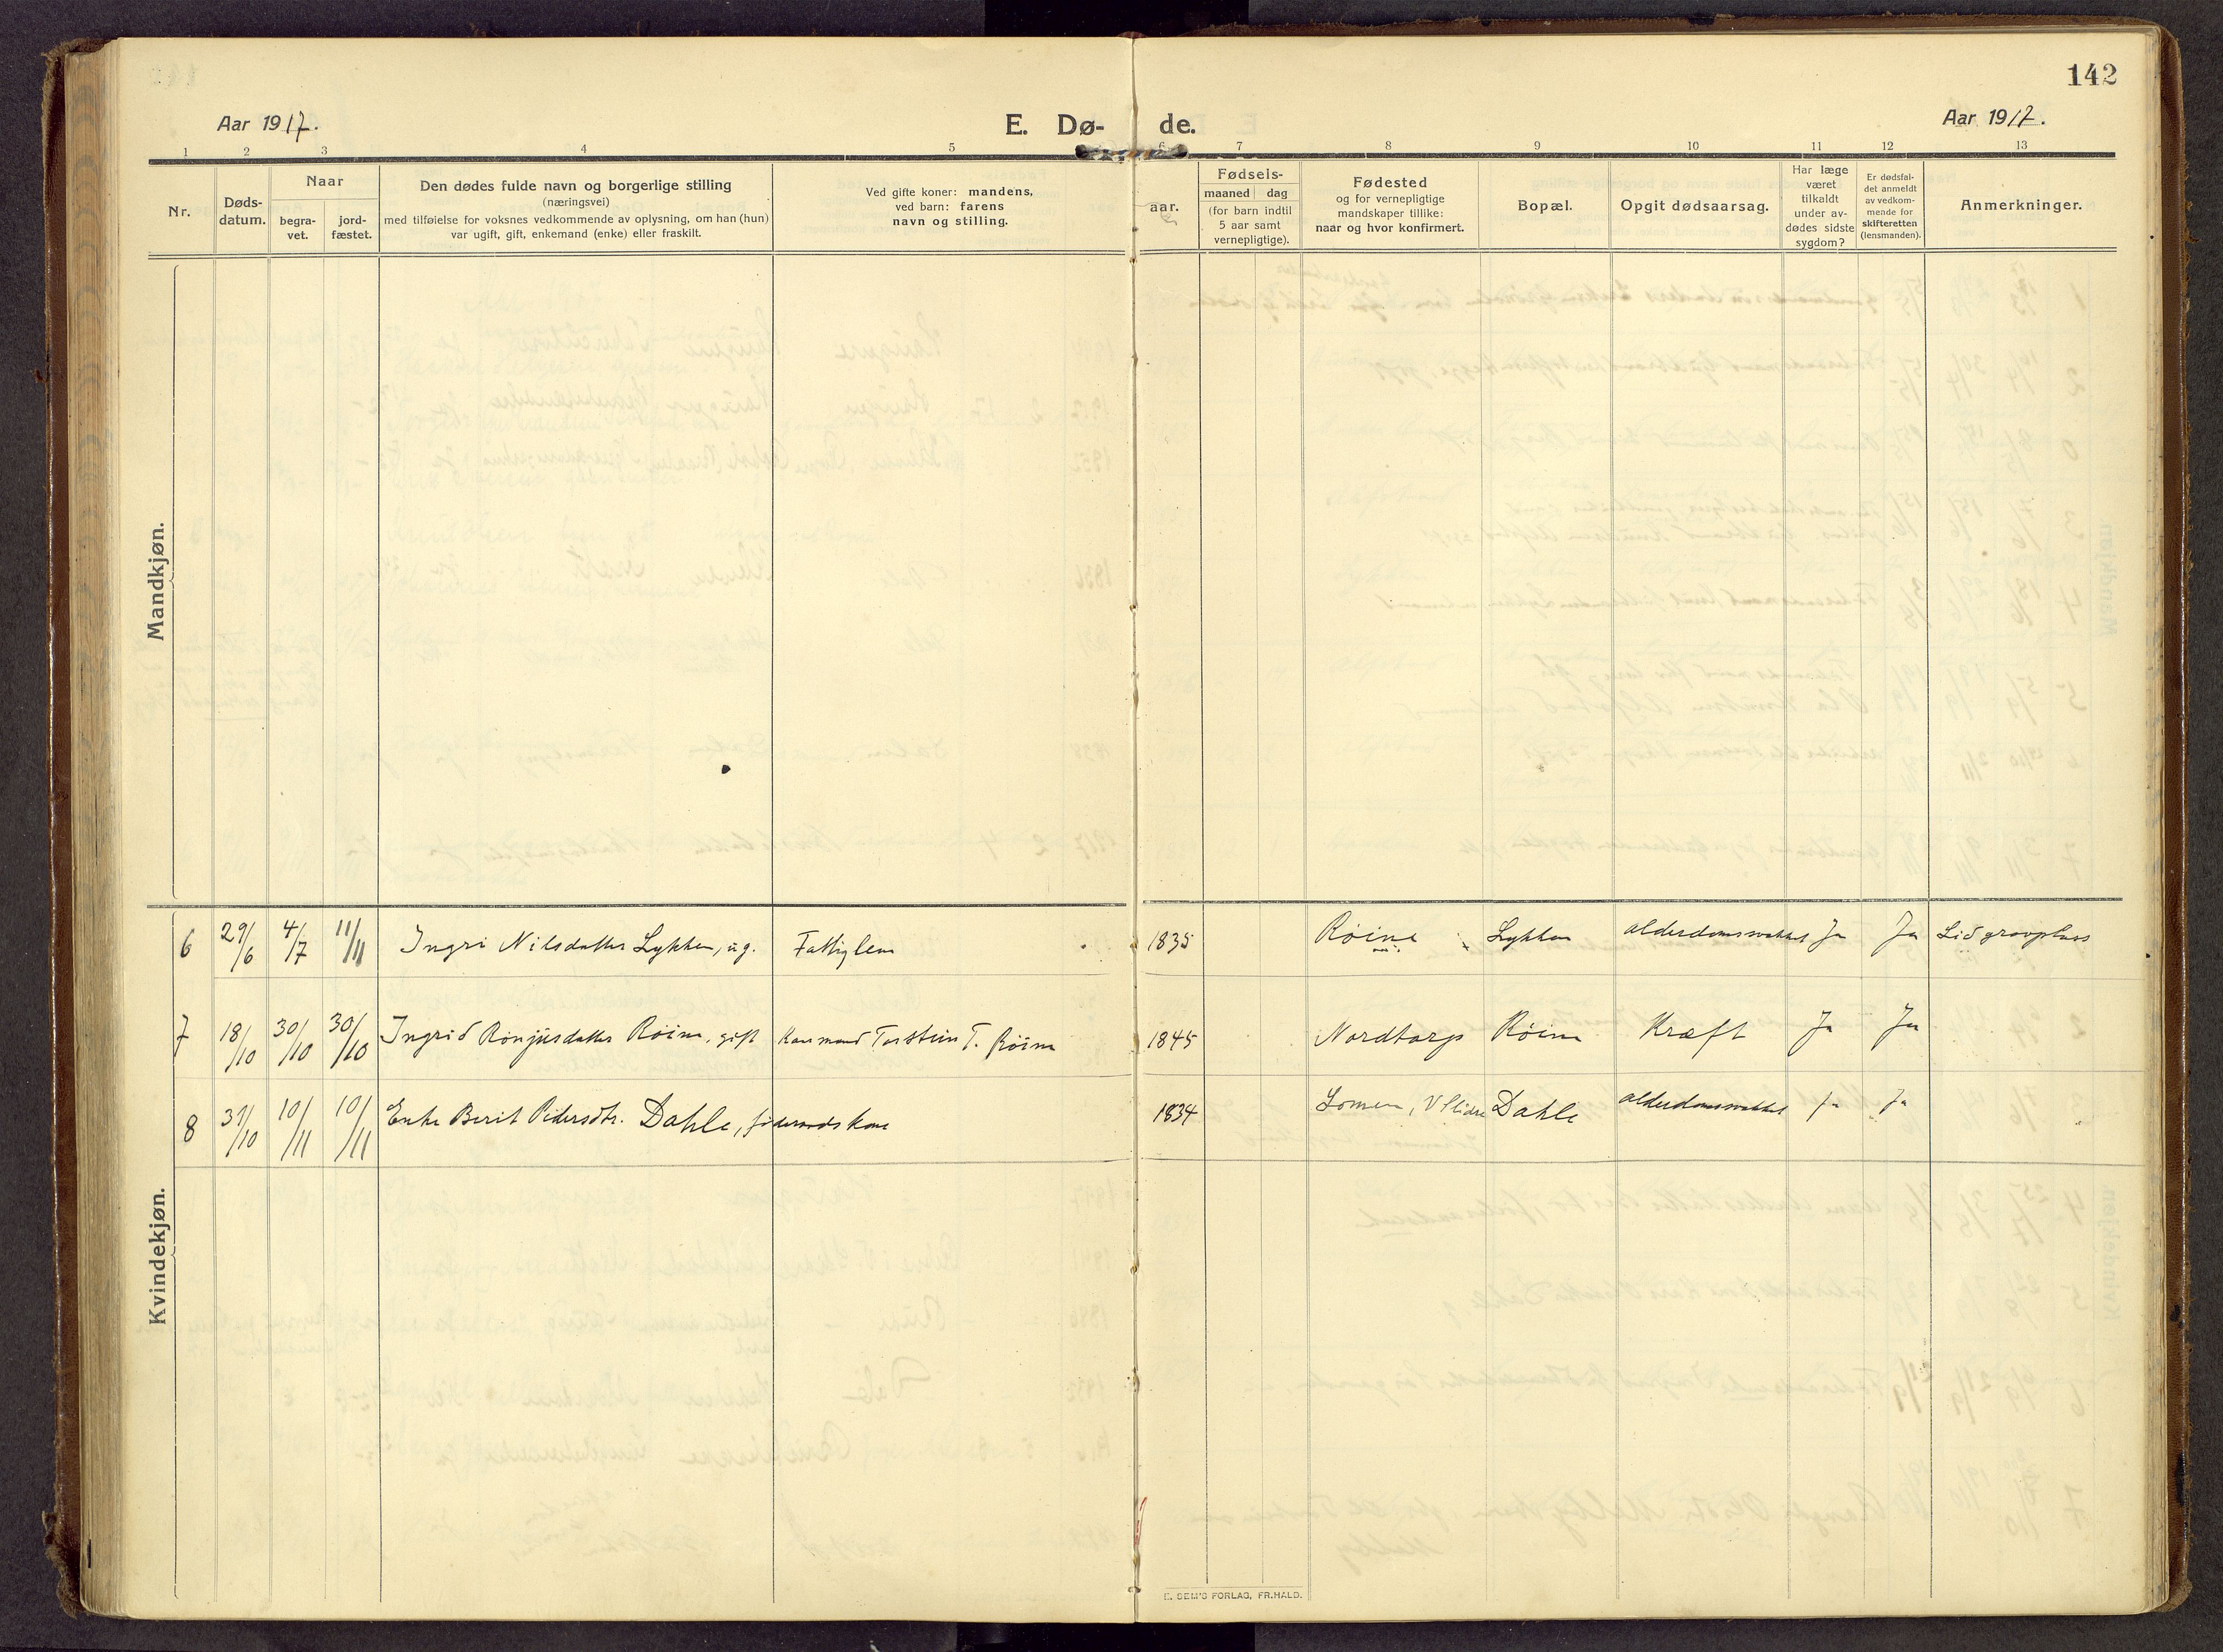 142
Aar 1917.
E. Dø-
de.
Aar 1917.
1 2 3 4 5 6 7 8 9 10 11 12 13
Nr.
Døds-
datum.
Naar
begra-
vet.
jord-
fæstet.
Den dødes fulde navn og borgerlige stilling
(næringsvei)
med tilføielse for voksnes vedkommende av oplysning, om han (hun)
var ugift, gift, enkemand (enke) eller fraskilt.
Ved gifte koner: mandens,
ved barn: farens
navn og stilling.
aar.
Fødsels-
maaned dag
(for barn indtil
5 aar samt
vernepligtige).
Fødested
og for vernepligtige
mandskaper tillike:
naar og hvor konfirmert.
Bopæl.
Opgit dødsaarsag.
Har læge
været
tilkaldt
under av-
dødes sidste
sygdom?
Er dødsfal-
det anmeldt
av vedkom-
mende for
skifteretten
(lensmanden).
Anmerkninger.
Mandkjøn.
6 29/6 4/7 11/11 Ingri Nilsdatter Lykken, ug. Fattiglem 1835 Røine Lykken alderdomssvakhet Ja Ja Lid gravplass
7 18/10 30/10 30/10 Ingrid Rønjusdatter Røine, gift Kaarmand Torstein T. Røine 1845 Nordtorp Røine Kræft Ja Ja
8 31/10 10/11 10/11 Enke Berit Pedersdtr. Dahle, føderaads kone 1834 Lomen, V Slidre Dahle alderdomssvakhet Ja Ja
Kvindekjøn.
E. SEM'S FORLAG, FR.HALD.